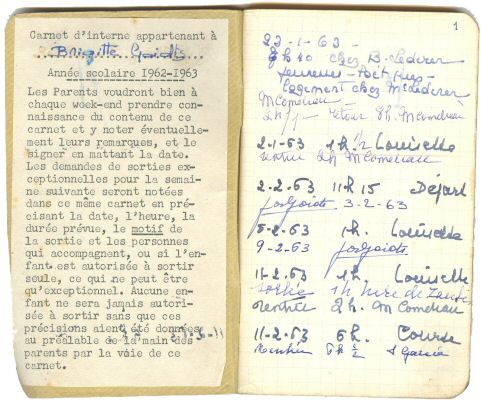 Carnet d'interne appartenant à
Brigitte
Année scolaire 1962-1963
Les Parents voudront bien à
chaque week-end prendre con-
naissance du contenu de ce
carnet et y noter éventuelle-
ment leurs remarques, et le
signer en mattant la date.
Les demandes de sorties ex-
ceptionnelles pour la semai-
ne suivante seront notées
dans ce même carnet en pré-
cisant la date, l'heure, la
durée prévue, le motif de
la sortie et les personnes
qui accompagnent, ou si l'en-
fant est autorisée à sortir
seule, ce qui ne peut être
qu'exceptionnel. Aucune en-
fant ne sera jamais autori-
sée à sortir sans que ces
précisions aient été données
au préalable de la main des
parents par la voie de ce
carnet.
1
23-1-63-
chez B. Lederer
logement chez Mr Lederer
M Comeliau
retour 8h. M Comeliau
2-1-63 1h 1/2 Louisette
rentrée 2h M Comeliau
2-2-63 11h15 Départ
3-2-63
5-2-63 1h. Louisette
9-2-63
11-2-63 1h Louisette
sortie 1h
rentrée 2h. M Comeliau
11-2-63 6h. Course
Rentrée 6h 1/2 Garcia